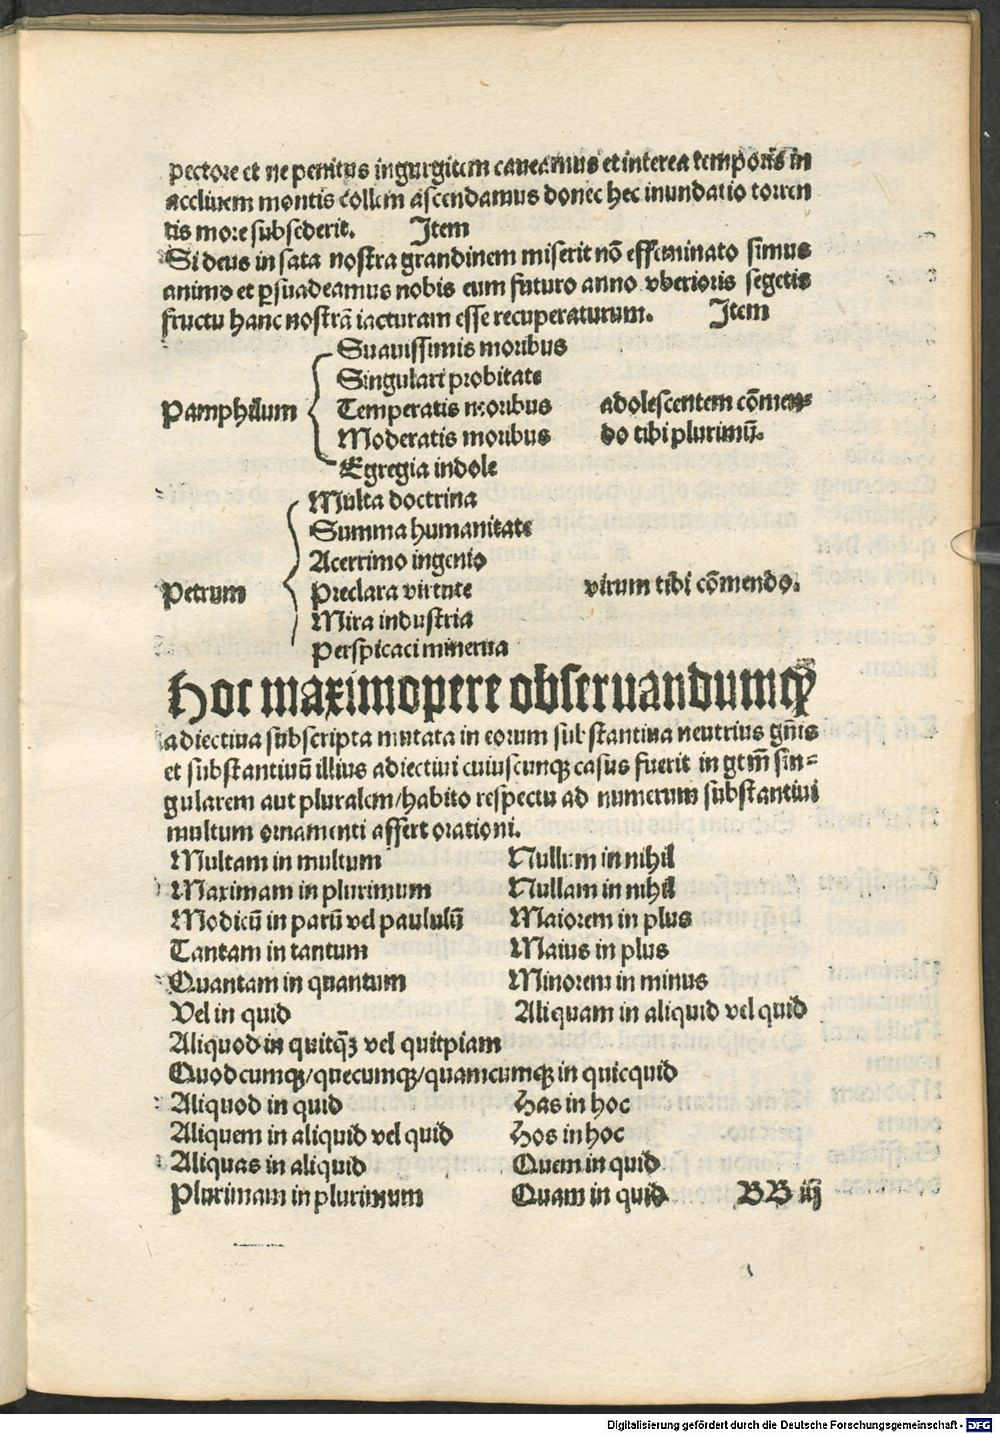 pectore et ne penitus in gurgitem caueamus et interea temporis in
accliuem montis collem ascendamus donec hec inundatio torren
tis more subsederit. Item
Si deus in sata nostra grandinem miserit nō effeminato simus
animo et ꝑsuadeamus nobis eum futuro anno vberioris segetis
fructu hanc nostrā iacturam esse recuperaturum. Item
Suauissimis moribus
Singulari probitate
Pamphilum Temperatis moribus adolescentem cōmen⸗
Moderatis moribus do tibi plurimū.
Egregia indole
Multa doctrina
Summa humanitate
Acerrimo ingenio
Petrum Preclara virtute virum tibi cōmendo.
Mira industria
Perspicaci minerua
Hoc maximopere obseruandumqꝫ
adiectiua subscripta mutata in eorum substantiua neutrius gn̄is
et substantiuū illius adiectiui cuiuscunqꝫ casus fuerit in gtm̄ sin⸗
gularem aut pluralem/habito respectu ad numerum substantiui
multum ornamenti affert orationi.
Multam in multum Nullum in nihil
Maximam in plurimum Nullam in nihil
Modicū in parū vel paululū Maiorem in plus
Tantam in tantum Maius in plus
Quantam in quantum Minorem in minus
Vel in quid Aliquam in aliquid vel quid
Aliquod in quitqꝫ vel quitpiam
Quodcumqꝫ/quecumqꝫ/quamcumqꝫ in quicquid
Aliquod in quid Has in hoc
Aliquem in aliquid vel quid Hos in hoc
Aliquas in aliquid Quem in quid
Plurimam in plurimum Quam in quid BB iij
Digitalisierung gefördert durch die Deutsche Forschungsgemeinschaft - DFG